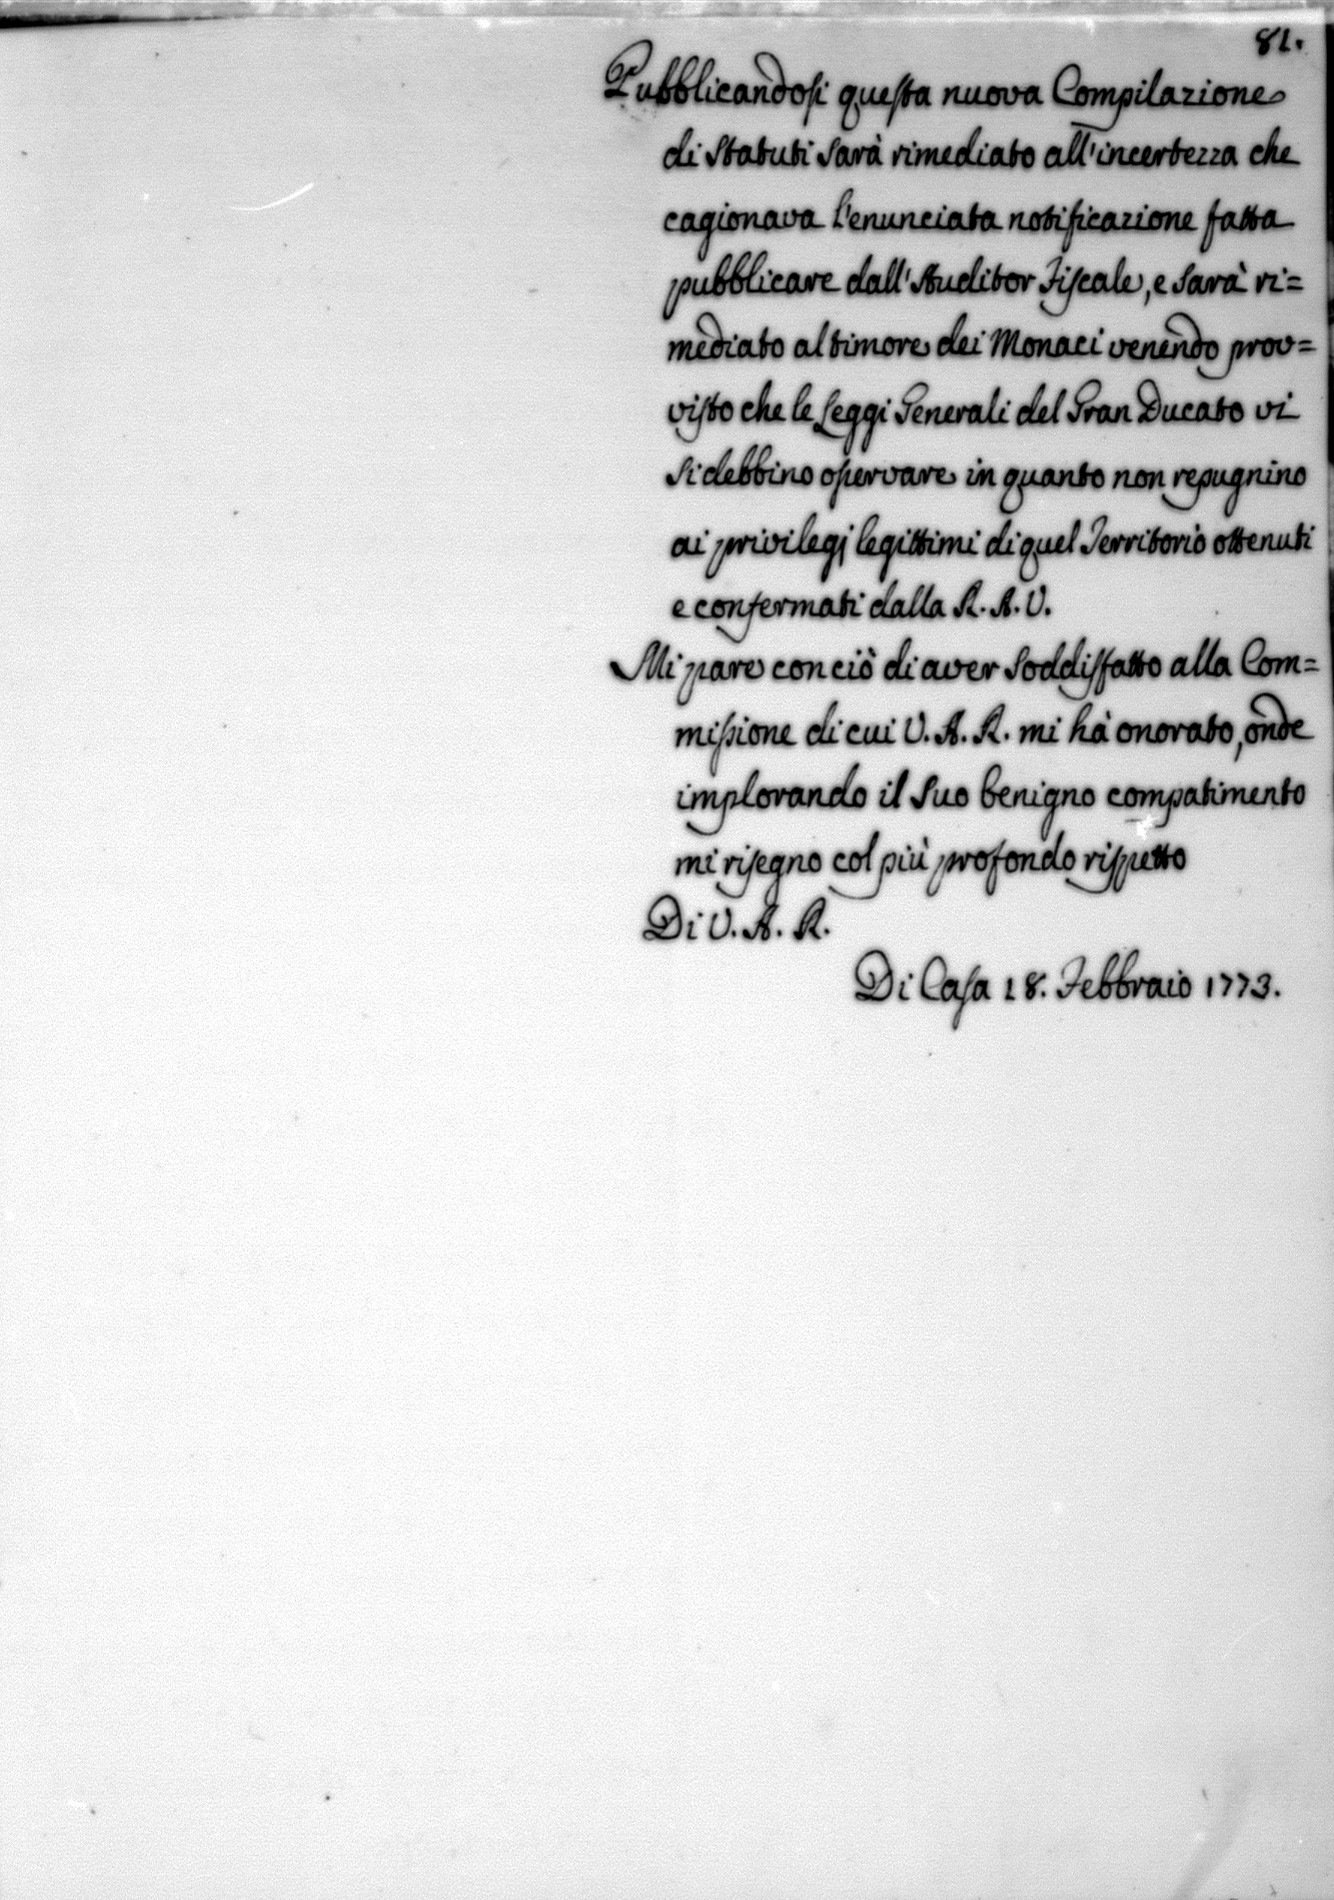 81.
Pubblicandosi questa nuova Compilazione
di Statuti sarà rimediato all'incertezza che
cagionava l'enunciata notificazione fatta
pubblicare dall'Auditor Fiscale, e sarà ri=
mediato al timore dei Monaci venendo prov=
visto che le Leggi Generali del Gran Ducato vi
si debbino osservare in quanto non repugnino
ai privilegj legittimi di quel Territorio ottenuti
e confermati dalla R. A. V.
Mi pare con ciò di aver soddisfatto alla Com=
missione di cui V. A. R. mi hà onorato, onde
implorando il Suo benigno compatimento
mi risegno col più profondo rispetto
Di V. A. R.
Di Casa 18. Febbraio 1773.